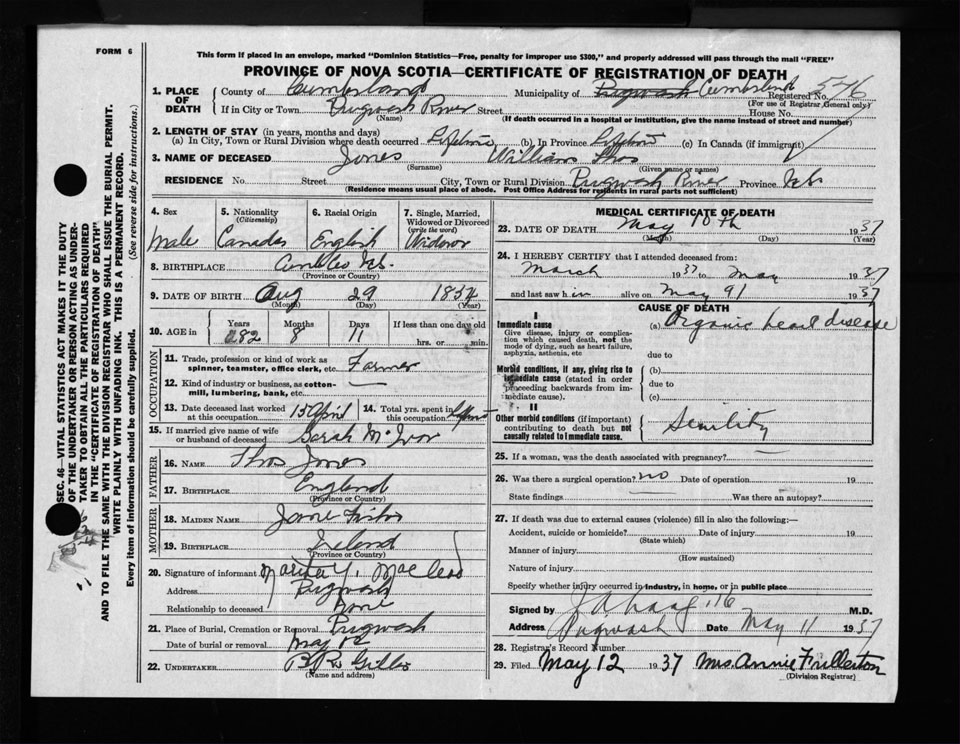 FORM 6
This form if placed in an envelope, marked "Dominion Statistics—Free, penalty for improper use $300," and properly addressed will pass through the mail "FREE"
PROVINCE OF NOVA SCOTIA—CERTIFICATE OF REGISTRATION OF DEATH
SEC. 46—VITAL STATISTICS ACT MAKES IT THE DUTY
OF THE UNDERTAKER OR PERSON ACTING AS UNDER-
TAKER TO OBTAIN ALL THE PARTICULARS REQUIRED
IN THE "CERTIFICATE OF REGISTRATION OF DEATH"
AND TO FILE THE SAME WITH THE DIVISION REGISTRAR WHO SHALL ISSUE THE BURIAL PERMIT.
WRITE PLAINLY WITH UNFADING INK. THIS IS A PERMANENT RECORD.
Every item of information should be carefully supplied. (See reverse side for instructions.)
1. PLACE OF DEATH County of Cumberland Municipality of Pugwash Cumberland Registered No. 576
(For use of Registrar General only)
If in City or Town Pugwash River Street House No.
(Name) (If death occurred in a hospital or institution, give the name instead of street and number)
2. LENGTH OF STAY (in years, months and days)
(a) In City, Town or Rural Division where death occurred Lifetime (b) In Province Lifetime (c) In Canada (if immigrant)
3. NAME OF DECEASED Jones William Thos
(Surname) (Given name or names)
RESIDENCE No. Street City, Town or Rural Division Pugwash River Province N.S.
(Residence means usual place of abode. Post Office Address for residents in rural parts not sufficient)
4. Sex Male
5. Nationality (Citizenship) Canadas
6. Racial Origin English
7. Single, Married, Widowed or Divorced (write the word) Widower
8. BIRTHPLACE N.S.
(Province or Country)
9. DATE OF BIRTH Aug 29 1854
(Month) (Day) (Year)
10. AGE in Years 82 Months 8 Days 11 If less than one day old hrs. or min.
OCCUPATION
11. Trade, profession or kind of work as spinner, teamster, office clerk, etc. Farmer
12. Kind of industry or business, as cotton-mill, lumbering, bank, etc. —
13. Date deceased last worked at this occupation 15 April 14. Total yrs. spent in this occupation
15. If married give name of wife or husband of deceased Sarah McIvor
FATHER
16. NAME Thos Jones
17. BIRTHPLACE England
(Province or Country)
MOTHER
18. MAIDEN NAME Jane
19. BIRTHPLACE Ireland
(Province or Country)
20. Signature of informant MacLeod
Address Pugwash
Relationship to deceased None
21. Place of Burial, Cremation or Removal Pugwash
Date of burial or removal May 12
22. UNDERTAKER
(Name and address)
MEDICAL CERTIFICATE OF DEATH
23. DATE OF DEATH May 10th 1937
(Month) (Day) (Year)
24. I HEREBY CERTIFY that I attended deceased from:
March 1937 to May 1937
and last saw him alive on May 9 1937
CAUSE OF DEATH
I
Immediate cause (a) Organic heart disease
Give disease, injury or complication which caused death, not the mode of dying, such as heart failure, asphyxia, asthenia, etc due to
Morbid conditions, if any, giving rise to immediate cause (stated in order proceeding backwards from immediate cause). (b) due to (c)
II
Other morbid conditions (if important) contributing to death but not causally related to Immediate cause. Senility
25. If a woman, was the death associated with pregnancy?
26. Was there a surgical operation? no Date of operation 19
State findings Was there an autopsy?
27. If death was due to external causes (violence) fill in also the following:—
Accident, suicide or homicide? Date of injury 19
(State which)
Manner of injury
(How sustained)
Nature of injury
Specify whether injury occurred in industry, in home, or in public place
Signed by M.D.
Address Pugwash Date May 11 1937
28. Registrar's Record Number
29. Filed May 12 1937 Mrs. Annie Fullerton
(Division Registrar)